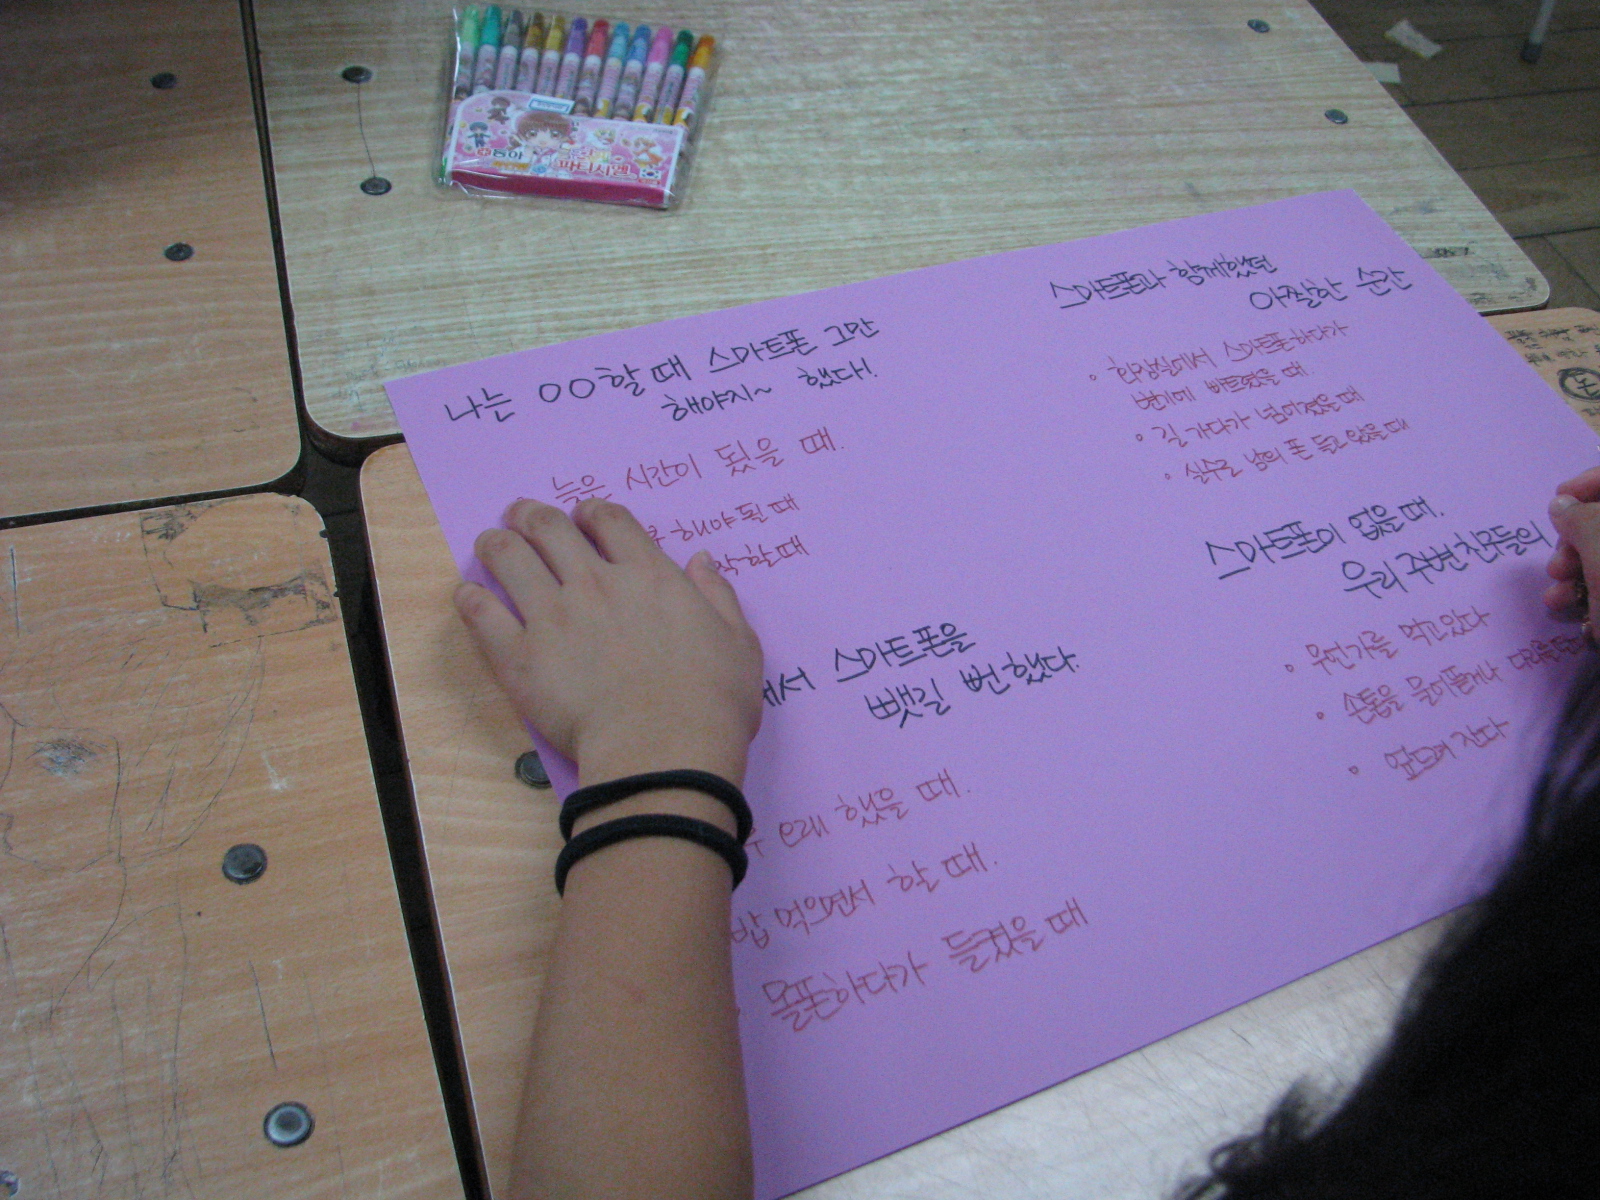 동아
파티시엘
나는 OO할 때 스마트폰 그만
해야지~ 했다!
늦은 시간이 됐을 때.
해야 될 때
할 때
에서 스마트폰을
뺏길 뻔 했다.
오래 했을 때.
밥 먹으면서 할 때.
몰폰하다가 들켰을 때
스마트폰과 함께했던
아찔한 순간
• 화장실에서 스마트폰하다가
변기에 빠트렸을 때
• 길 가다가 넘어졌을 때
• 실수로 남의 폰 들고 왔을 때
스마트폰이 없을 때.
우리 주변 친구들의
• 무언가를 먹고있다
• 손톱을 물어뜯거나 다리를
• 엎드려 잔다